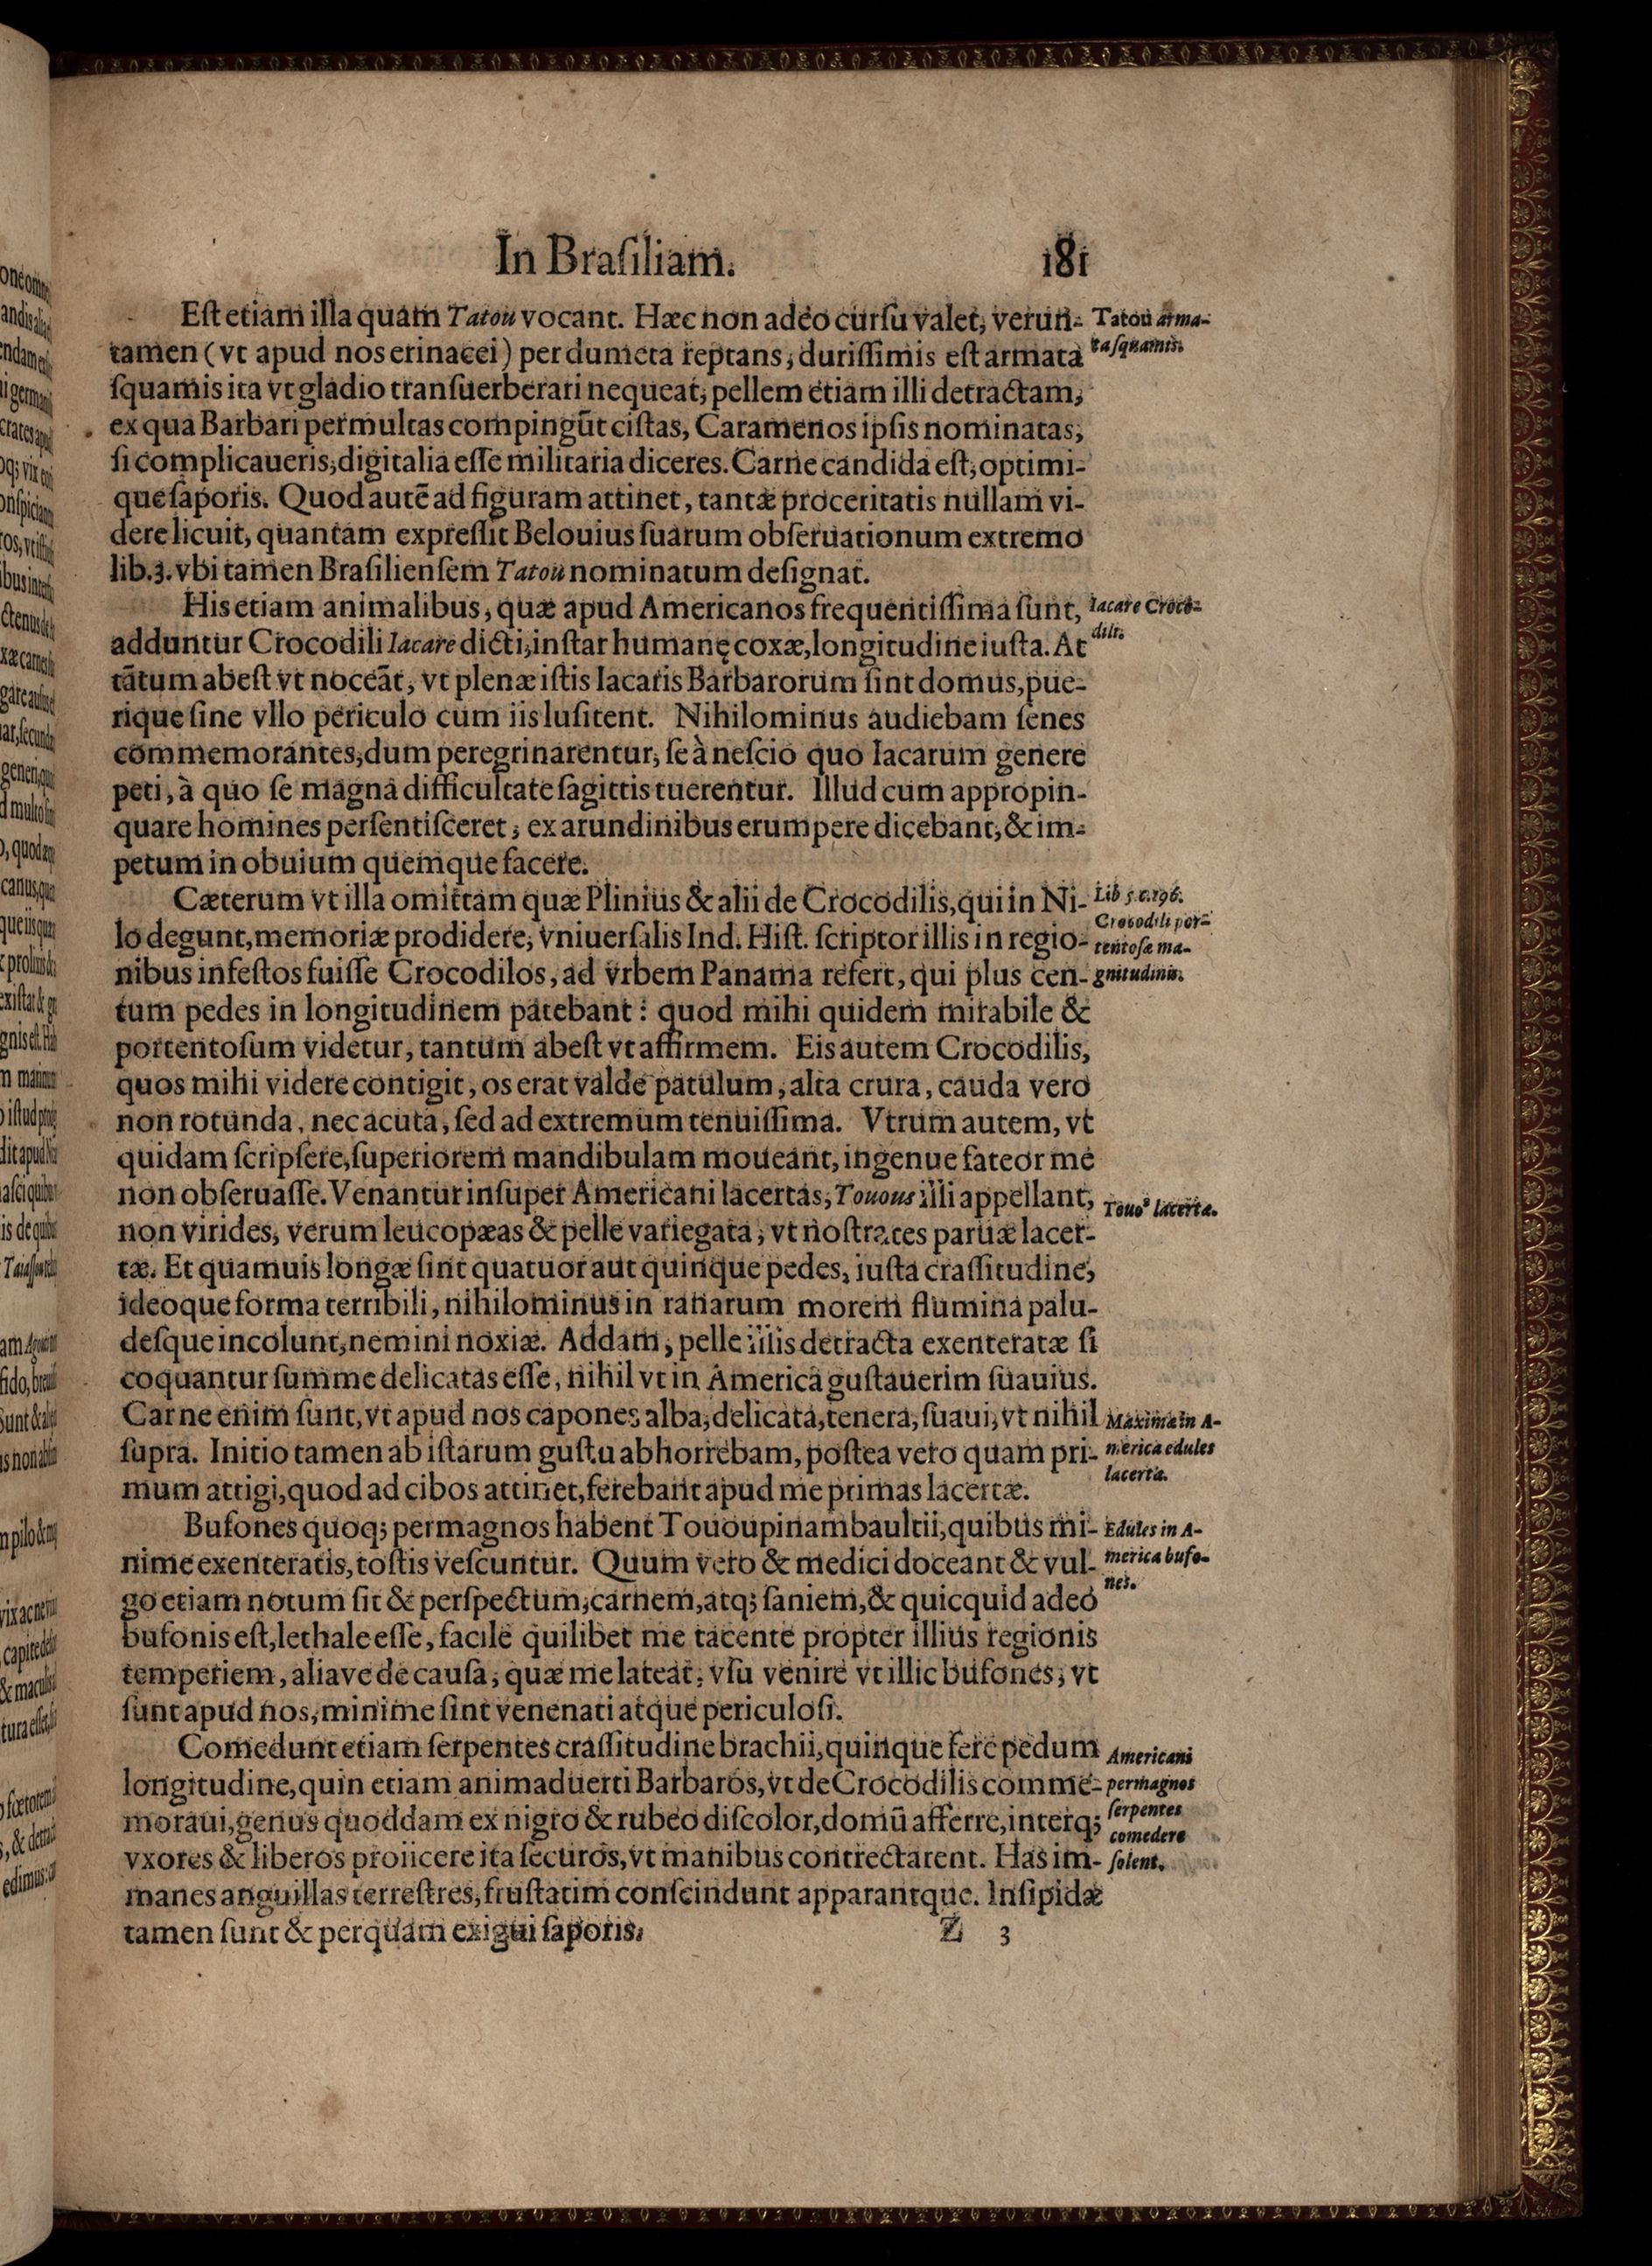 In Braſiliam. 181
Eſt etiam illa quam Tatou vocant. Hæc non adeo curſu valet, verun-
tamen (vt apud nos erinacei) per dumeta reptans, duriſſimis eſt armata
ſquamis ita vt gladio tranſuerberari nequeat, pellem etiam illi detractam,
ex qua Barbari permultas compingūt ciſtas, Caramenos ipſis nominatas,
ſi complicaueris, digitalia eſſe militaria diceres. Carne candida eſt, optimi-
que ſaporis. Quod autē ad figuram attinet, tantæ proceritatis nullam vi-
dere licuit, quantam expreſſit Belouius ſuarum obſeruationum extremo
lib.3. vbi tamen Braſilienſem Tatou nominatum deſignat.
Tatou arma-
ta ſquamis.
His etiam animalibus, quæ apud Americanos frequentiſſima ſunt,
adduntur Crocodili Iacare dicti, inſtar humanę coxæ, longitudine iuſta. At
tātum abeſt vt noceāt, vt plenæ iſtis Iacaris Barbarorum ſint domus, pue-
rique ſine vllo periculo cum iis luſitent. Nihilominus audiebam ſenes
commemorantes, dum peregrinarentur, ſe à neſcio quo Iacarum genere
peti, à quo ſe magna difficultate ſagittis tuerentur. Illud cum appropin-
quare homines perſentiſceret, ex arundinibus erumpere dicebant, & im-
petum in obuium quemque facere.
Iacare Croco-
dili.
Cæterum vt illa omittam quæ Plinius & alii de Crocodilis, qui in Ni-
lo degunt, memoriæ prodidere, vniuerſalis Ind. Hiſt. ſcriptor illis in regio-
nibus infeſtos fuiſſe Crocodilos, ad vrbem Panama refert, qui plus cen-
tum pedes in longitudinem patebant: quod mihi quidem mirabile &
portentoſum videtur, tantum abeſt vt affirmem. Eis autem Crocodilis,
quos mihi videre contigit, os erat valde patulum, alta crura, cauda vero
non rotunda, nec acuta, ſed ad extremum tenuiſſima. Vtrum autem, vt
quidam ſcripſere, ſuperiorem mandibulam moueant, ingenue fateor me
non obſeruaſſe. Venantur inſuper Americani lacertas, Touous illi appellant,
non virides, verum leucopæas & pelle variegata, vt noſtrates paruæ lacer-
tæ. Et quamuis longæ ſint quatuor aut quinque pedes, iuſta craſſitudine,
ideoque forma terribili, nihilominus in ranarum morem flumina palu-
deſque incolunt, nemini noxiæ. Addam, pelle illis detracta exenteratæ ſi
coquantur ſumme delicatas eſſe, nihil vt in America guſtauerim ſuauius.
Carne enim ſunt, vt apud nos capones alba, delicata, tenera, ſuaui, vt nihil
ſupra. Initio tamen ab iſtarum guſtu abhorrebam, poſtea vero quam pri-
mum attigi, quod ad cibos attinet, ferebant apud me primas lacertæ.
Lib 5.c.196.
Crocodili por-
tentoſæ ma-
gnitudinis.
Touoꝰ lacerta.
Maximæ in A-
merica edules
lacertæ.
Bufones quoq; permagnos habent Tououpinambaultii, quibus mi-
nime exenteratis, toſtis veſcuntur. Quum vero & medici doceant & vul-
go etiam notum ſit & perſpectum, carnem, atq; ſaniem, & quicquid adeo
bufonis eſt, lethale eſſe, facile quilibet me tacente propter illius regionis
temperiem, aliave de cauſa, quæ me lateat, vſu venire vt illic bufones, vt
ſunt apud nos, minime ſint venenati atque periculoſi.
Edules in A-
merica bufo-
nes.
Comedunt etiam ſerpentes craſſitudine brachii, quinque fere pedum
longitudine, quin etiam animaduerti Barbaros, vt de Crocodilis comme-
moraui, genus quoddam ex nigro & rubeo diſcolor, domū afferre, interq;
vxores & liberos proiicere ita ſecuros, vt manibus contrectarent. Has im-
manes anguillas terreſtres, fruſtatim conſcindunt apparantque. Inſipidæ
tamen ſunt & perquam exigui ſaporis.
Americani
permagnos
ſerpentes
comedere
ſolent.
Z 3